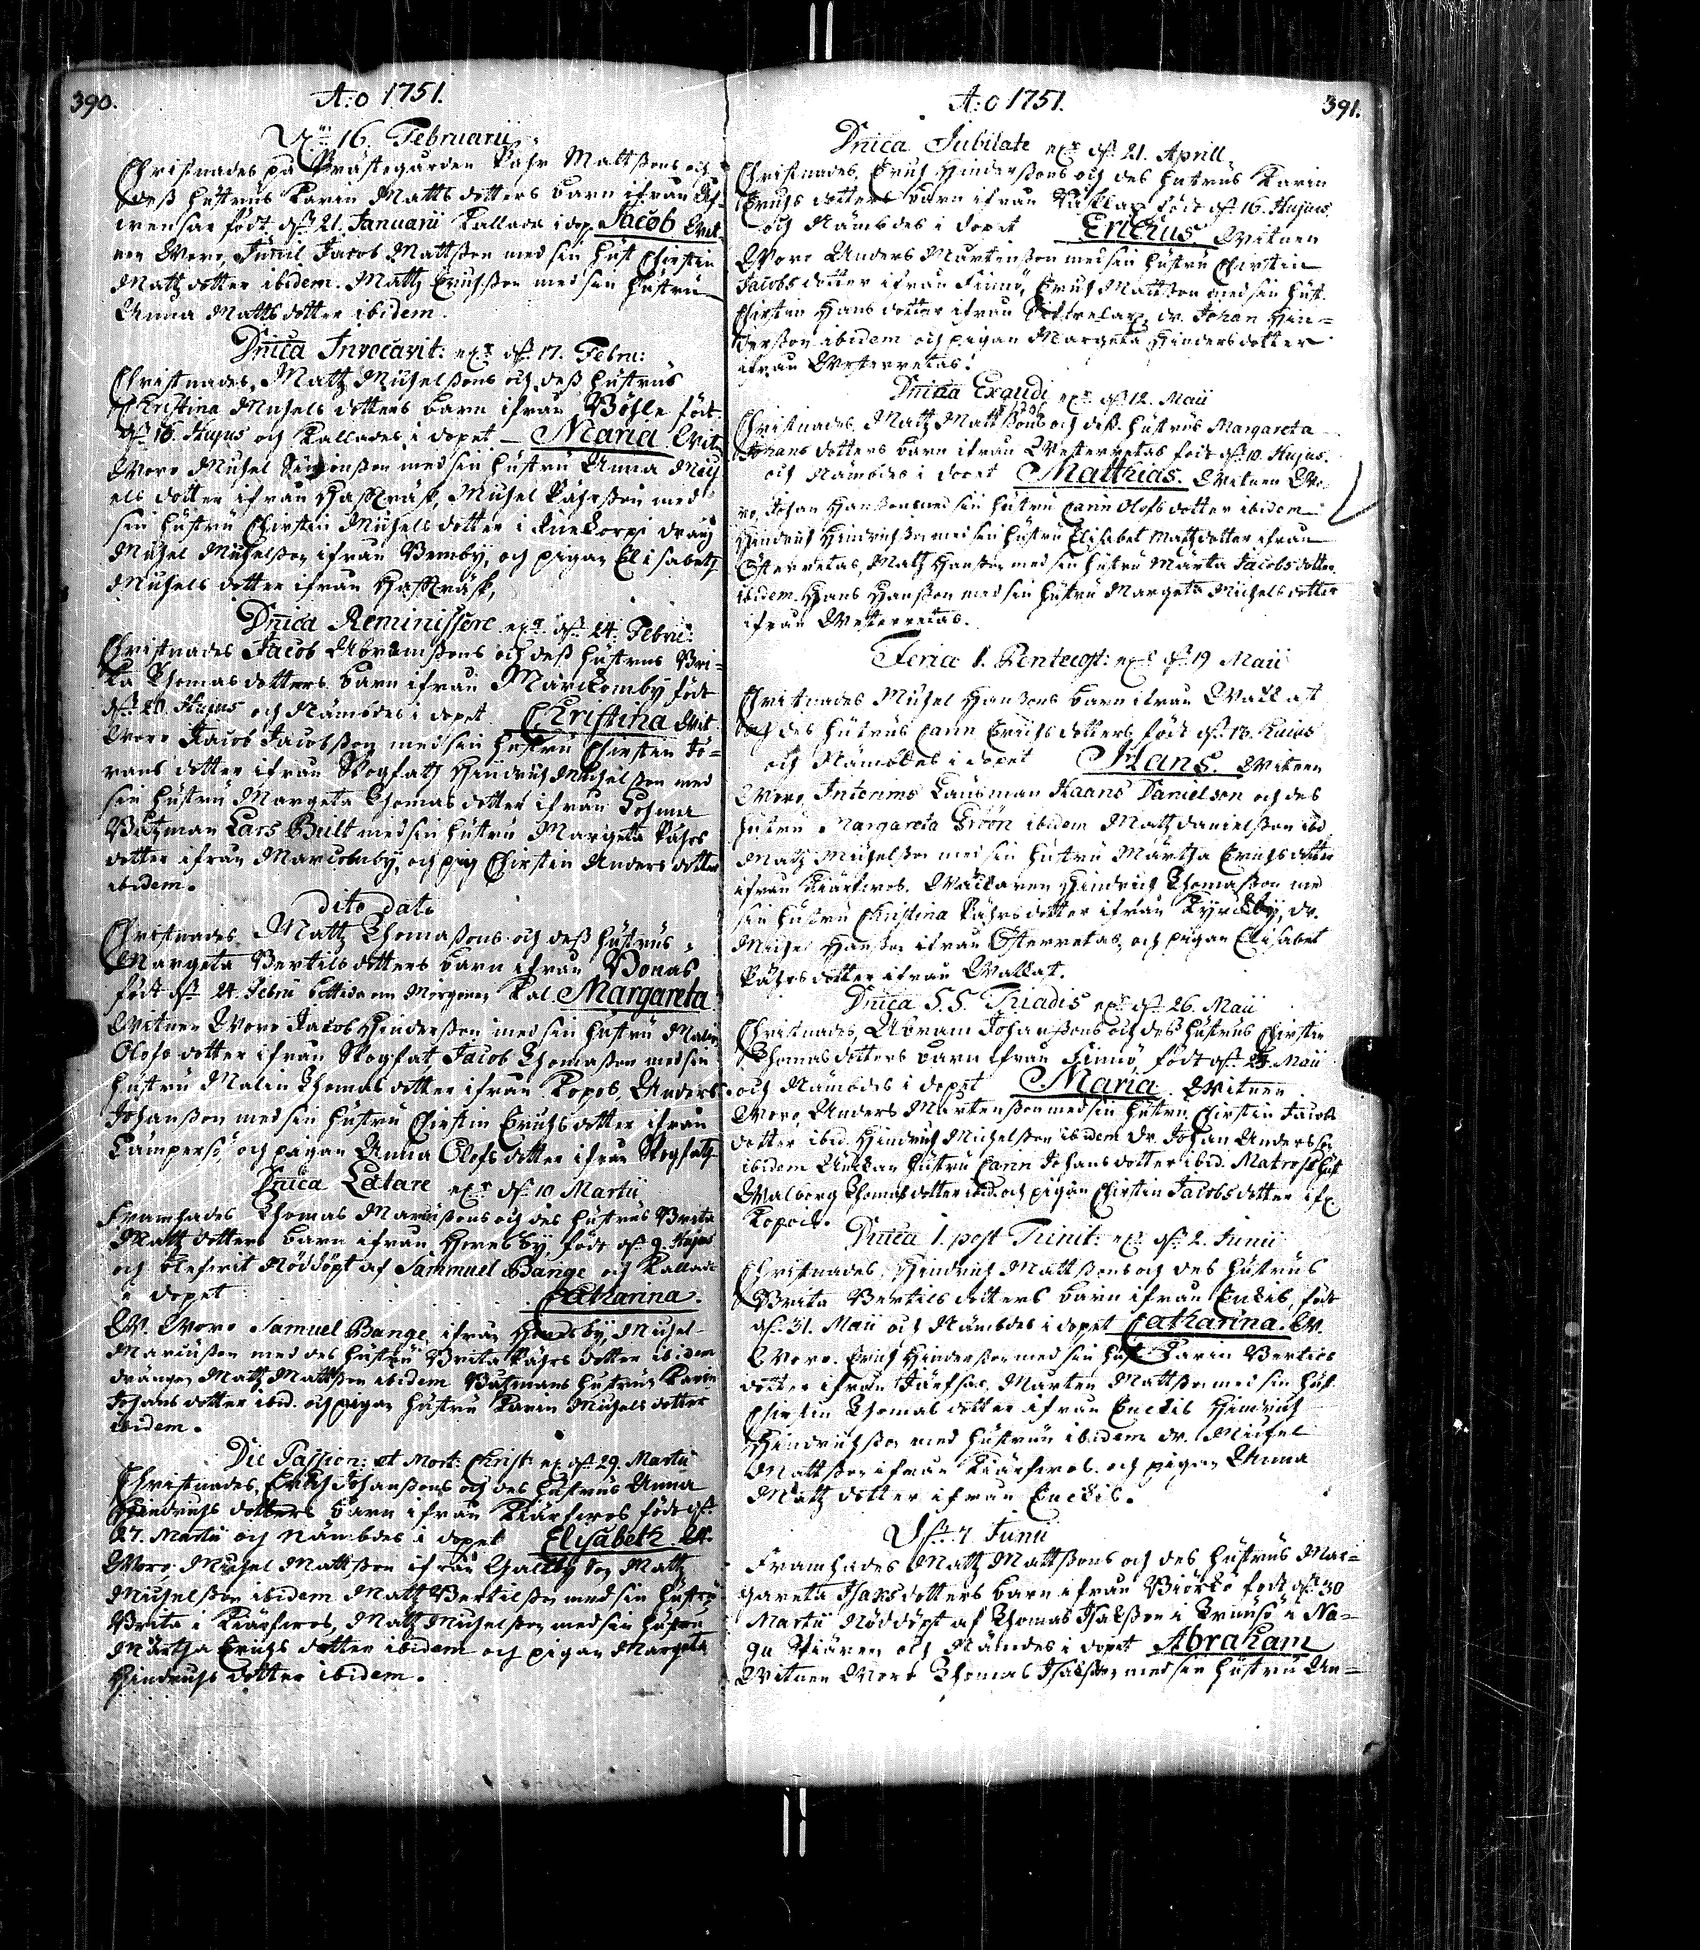 390.
A:o 1751.
16. Februarii
Christnades på Prästegården Påhr Mattssons och
dess hustrus Karin Matts dotters barn ifrån
födt d. 21. Januarii kallades i dop. Jacob Wit-
nen Woro Jacob Mattsson med sin hust Chirstin
Matz dotter ibidem. Matz Erichsson med sin hustru
Anna Matts dotter ibidem.
Dnica Invocavit: d. 17. Febru:
Christnades, Matz Michelssons och dess hustrus
Christina Michels dotters barn ifrån Böhle födt
d. 16. Hujus och kallades i dopet Maria Wit
Woro Michel Simonsson med sin hustru Anna Mich
els dotter ifrån Michel Påhrsson med
sin hustru Chirstin Michels dotter i
Michel Michelsson ifrån Bemby, och pigan Elisabeth
Michels dotter ifrån
Dnica Reminissere d. 24. Febru:
Christnades Jacob Abramssons och dess hustrus Bri-
ta Thomas dotters barn ifrån Marckomby födt
d. 20. Hujus och Nämbdes i dopet Christina Wit
Woro Jacob Jacobsson med sin hustru Chirstin Jö-
rans dotter ifrån Skogfatz Hindrich Michelsson med
sin hustru Margeta Thomas dotter ifrån
Båtzman Lars Bult med sin hustru Margeta Påhrs
dotter ifrån Marcomby, och pig Chirstin Anders dotter
ibidem.
dito dato
Christnades Mattz Thomassons och dess hustrus
Margeta Bertils dotters barn ifrån Bonäs
födt d. 24. Febru om Morgonen Kal Margareta
Witnen Woro Jacob Hindersson med sin hustru Malin
Olofs dotter ifrån Skogfat, Jacob Thomasson med sin
hustru Malin Thomas dotter ifrån Kopos, Anders
Johansson med sin hustru Chirstin Erichs dotter ifrån
Kampersö, och pigan Anna Olofs dotter ifrån Skogfatz
Dnica Lætare d. 10 Martii
Framhades Thomas Marcussons och des hustrus Brita
Matts dotters barn ifrån födt d. 9. Hujus
och blefwit Nöddöpt af Sammuel Bange och kallade
i dopet Catharina.
W. Woro Samuel Bange ifrån Michel
Marcusson med des hustru Brita Påhrs dotter ibidem
drängen Matz Mattsson ibidem Båtzmans hustrun Karin
Johans dotter ibid. och pigan hustru Karin Michels dotter
ibidem.
Die Passion: et Mort: Christ: d. 29. Martii
Christnades, Erich Johanssons och des hustrus Anna
Hindrichs dotters barn ifrån Kiärfwos födt d.
27. Martii och Nämbdes i dopet Elisabeth W.
Woro Michel Mattsson ifrån Matz
Michelsson ibidem Matz Bertilsson med sin hustru
Brita i Kiärfwos, Matz Michelsson med sin hustru
Märtha Erichs dotter ibidem och pigan Margeta
Hindrichs dotter ibidem.
A:o 1751.
391.
Dnica Jubilate d. 21. Aprill.
Christnades, Erich Hinderssons och des hustrus Karin
Erichs dotters barn ifrån födt d. 16. Hujus
och Nämbdes i dopet Ericus Witnen
Woro Anders Mårtensson med sin hustru Chirstin
Jacobs dotter ifrån Finnö, Erich Mattsson med sin hust
Chirstin Hans dotter ifrån dr. Johan Hin-
dersson ibidem och pigan Margeta Hinders dotter
ifrån Westerretas.
Dnica Exaudi d. 12. Maii
Christnades Matz Mattssons och dess hustrus Margareta
Johans dotters barn ifrån Westerretas födt d. 10. Hujus.
och Nämbdes i dopet Matthias. Witnen Wo-
ro, Johan Hansson med sin hustru Carin Olofs dotter ibidem
Hindrich Hindrichsson med sin hustru Elisabet Matz dotter ifrån
Österretas, Matz Hansson med sin hustru Märta Jacobs dotter
ibidem. Hans Hansson med sin hustru Margeta Michels dotter
ifrån Westerretas.
Feria 1. Pentecost: d. 19 Maii
Christnades Michel Hanssons barn ifrån Wallat
och des hustrus Carin Erichs dotters födt d. 13. Huius
och Nämbdes i dopet Hans. Witnen
Woro Interims Länsman Haans Danielson och des
hustru Margareta ibidem Matz Danielsson ibd
Matz Michelsson med sin hustru Märtha Erichs dotter
ifrån Kiärfwos. Hindrich Thomasson med
sin hustru Christina Påhrs dotter ifrån Kyrckby, dr.
Michel Hansson ifrån Österretas, och pigan Elisabet
Påhrs dotter ifrån Wallat.
Dnica S.S. Triadis d. 26. Maii
Christnades Abram Johanssons och des hustrus Chirstin
Thomas dotters barn ifrån Finnö, födt d. 23. Maii
och Nämbdes i dopet Maria Witnen
Woro, Anders Mårtensson med sin hustru Chirstin Jacobs
dotter ibid. Hindrich Michelsson ibidem Dr. Johan Andersson
ibidem hustru Carin Johans dotter ibid. Matros hust
Walborg Thomas dotter ibid. och pigan Chirstin Jacobs dotter ifr.
Kopois.
Dnica 1. post Trinit: d. 2. Junii
Christnades, Hindrich Mattssons och des hustrus
Brita Bertils dotters barn ifrån Enckis, födt
d. 31. Maii och Nämbdes i dopet Catharina. W.
Woro. Erich Hindersson med sin hust Karin Bertils
dotter ifrån Mårten Mattsson med sin hust
Chirstin Thomas dotter ifrån Enckis Hindrich
Hindrichsson med hustrun ibidem dr. Michel
Mattsson ifrån Kiärfwos. och pigan Anna
Matz dotter ifrån Enckis.
d. 7 Junii
Framhades Matz Mattssons och des hustrus Mar-
gareta Isaks dotters barn ifrån Biörkö födt d. 30
Martii Nöddöpt af Thomas Isaksson i Brunsö i Na-
gu och Nämdes i dopet Abraham
Witnen Woro Thomas Isaksson med sin hustru An-